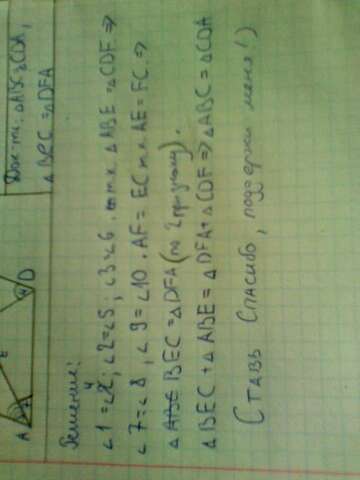 Док-ть: △ABC = △CDA,
△BEC = △DFA
E
D
A
Решение:
∠1 = ∠4; ∠2 = ∠5; ∠3 = ∠6, т.к. △ABE = △CDF ⇒
∠7 = ∠8, ∠9 = ∠10. AF = EC т.к. AE = FC. ⇒
△BEC = △DFA (по 2 признаку).
△BEC + △ABE = △DFA + △CDF ⇒ △ABC = △CDA
Ставь Спасибо, поддержи меня!)